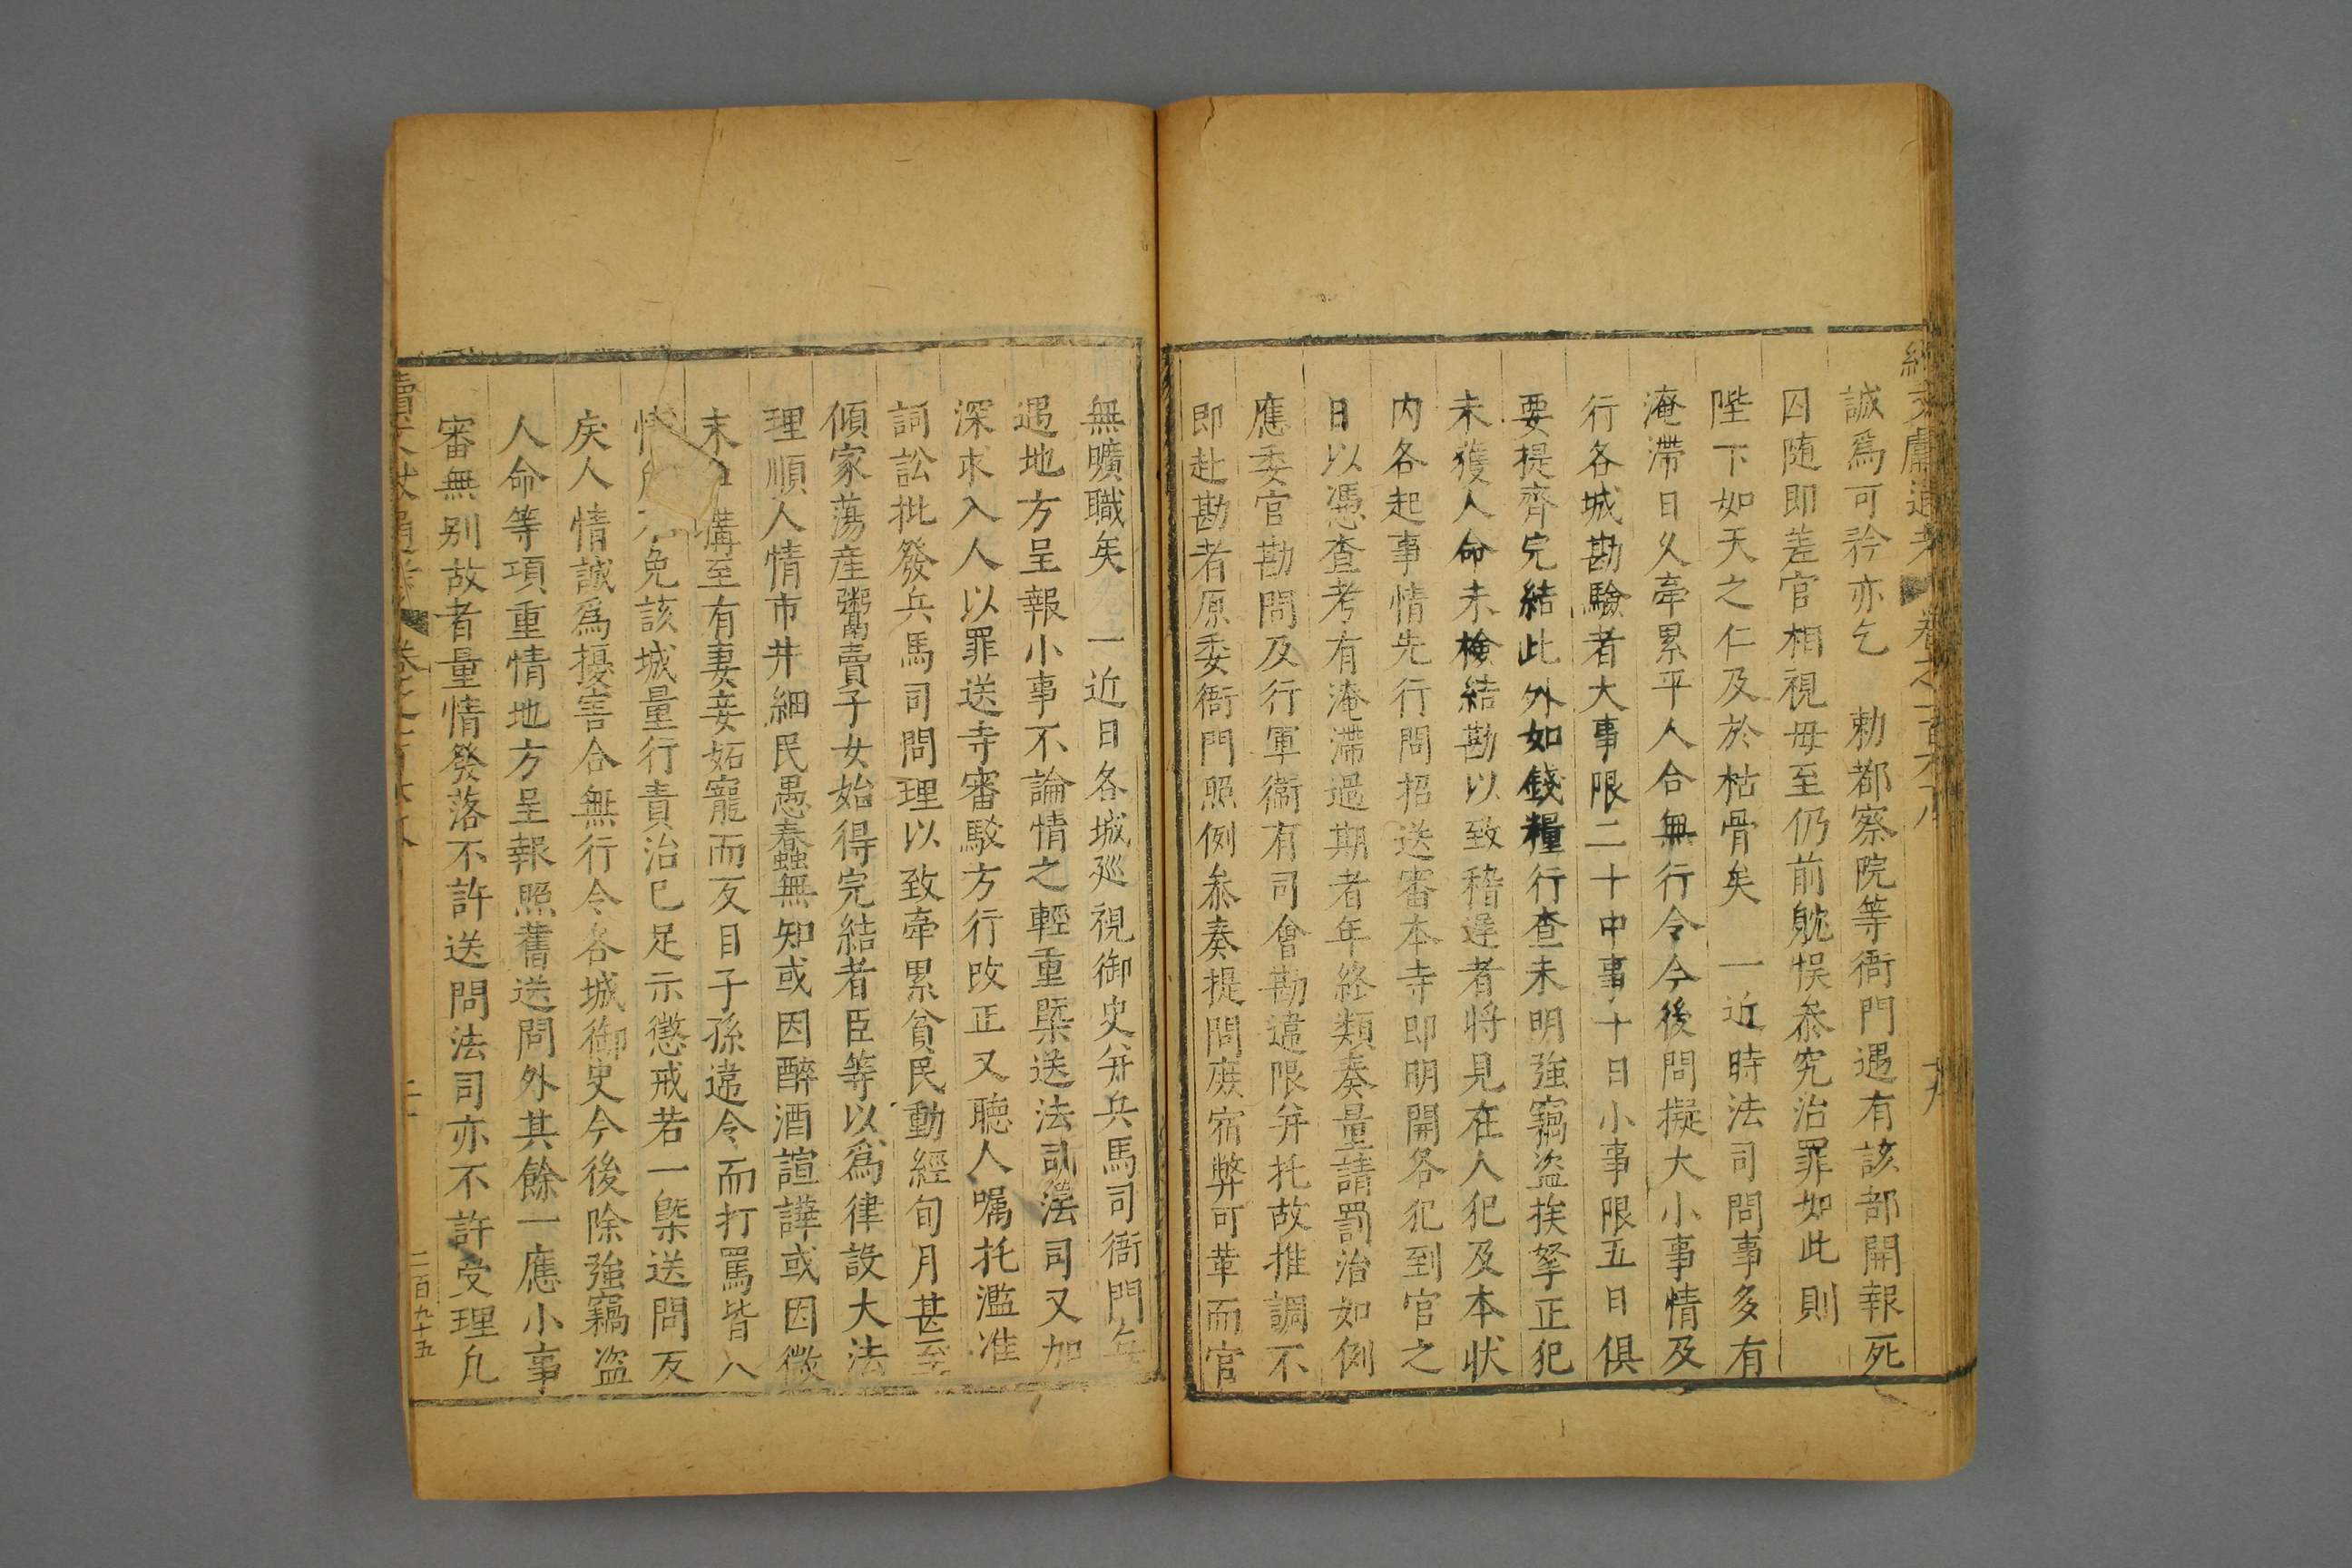 續文獻通考 卷之一百六八
誠爲可矜亦乞 勅都察院等衙門遇有該部開報死
囚随即差官相視毋至仍前躭悞叅究治罪如此則
陛下如天之仁及於枯骨矣 一近時法司問事多有
淹滯日久牽累平人合無行令今後問擬大小事情及
行各城勘驗者大事限二十中事十日小事限五日俱
要提齊完結此外如錢糧行查未明強竊盜挨拏正犯
未獲人命未檢結勘以致稽遲者將見在人犯及本狀
内各起事情先行問招送審本寺即明開各犯到官之
日以憑查考有淹滯過期者年終類奏量請罰治如例
應委官勘問及行軍衞有司會勘違限并托故推調不
即赴勘者原委衙門照例叅奏提問庶宿弊可革而官
無曠職矣 一近日各城廵視御史并兵馬司衙門每
遇地方呈報小事不論情之輕重槩送法司法司又加
深求入人以罪送寺審駁方行改正又聽人嘱托濫准
詞訟批發兵馬司問理以致牽累貧民動經旬月甚至
傾家蕩産粥賣子女始得完結者臣等以爲律設大法
理順人情市井細民愚蠢無知或因醉酒諠譁或因微
末 搆至有妻妾妬寵而反目子孫違令而打罵皆人
情 免該城量行責治已足示懲戒若一槩送問反
戾人情誠爲擾害合無行令各城御史今後除強竊盜
人命等項重情地方呈報照舊送問外其餘一應小事
審無别故者量情發落不許送問法司亦不許受理凡
續文獻通考 卷之一百六八
二百九十五